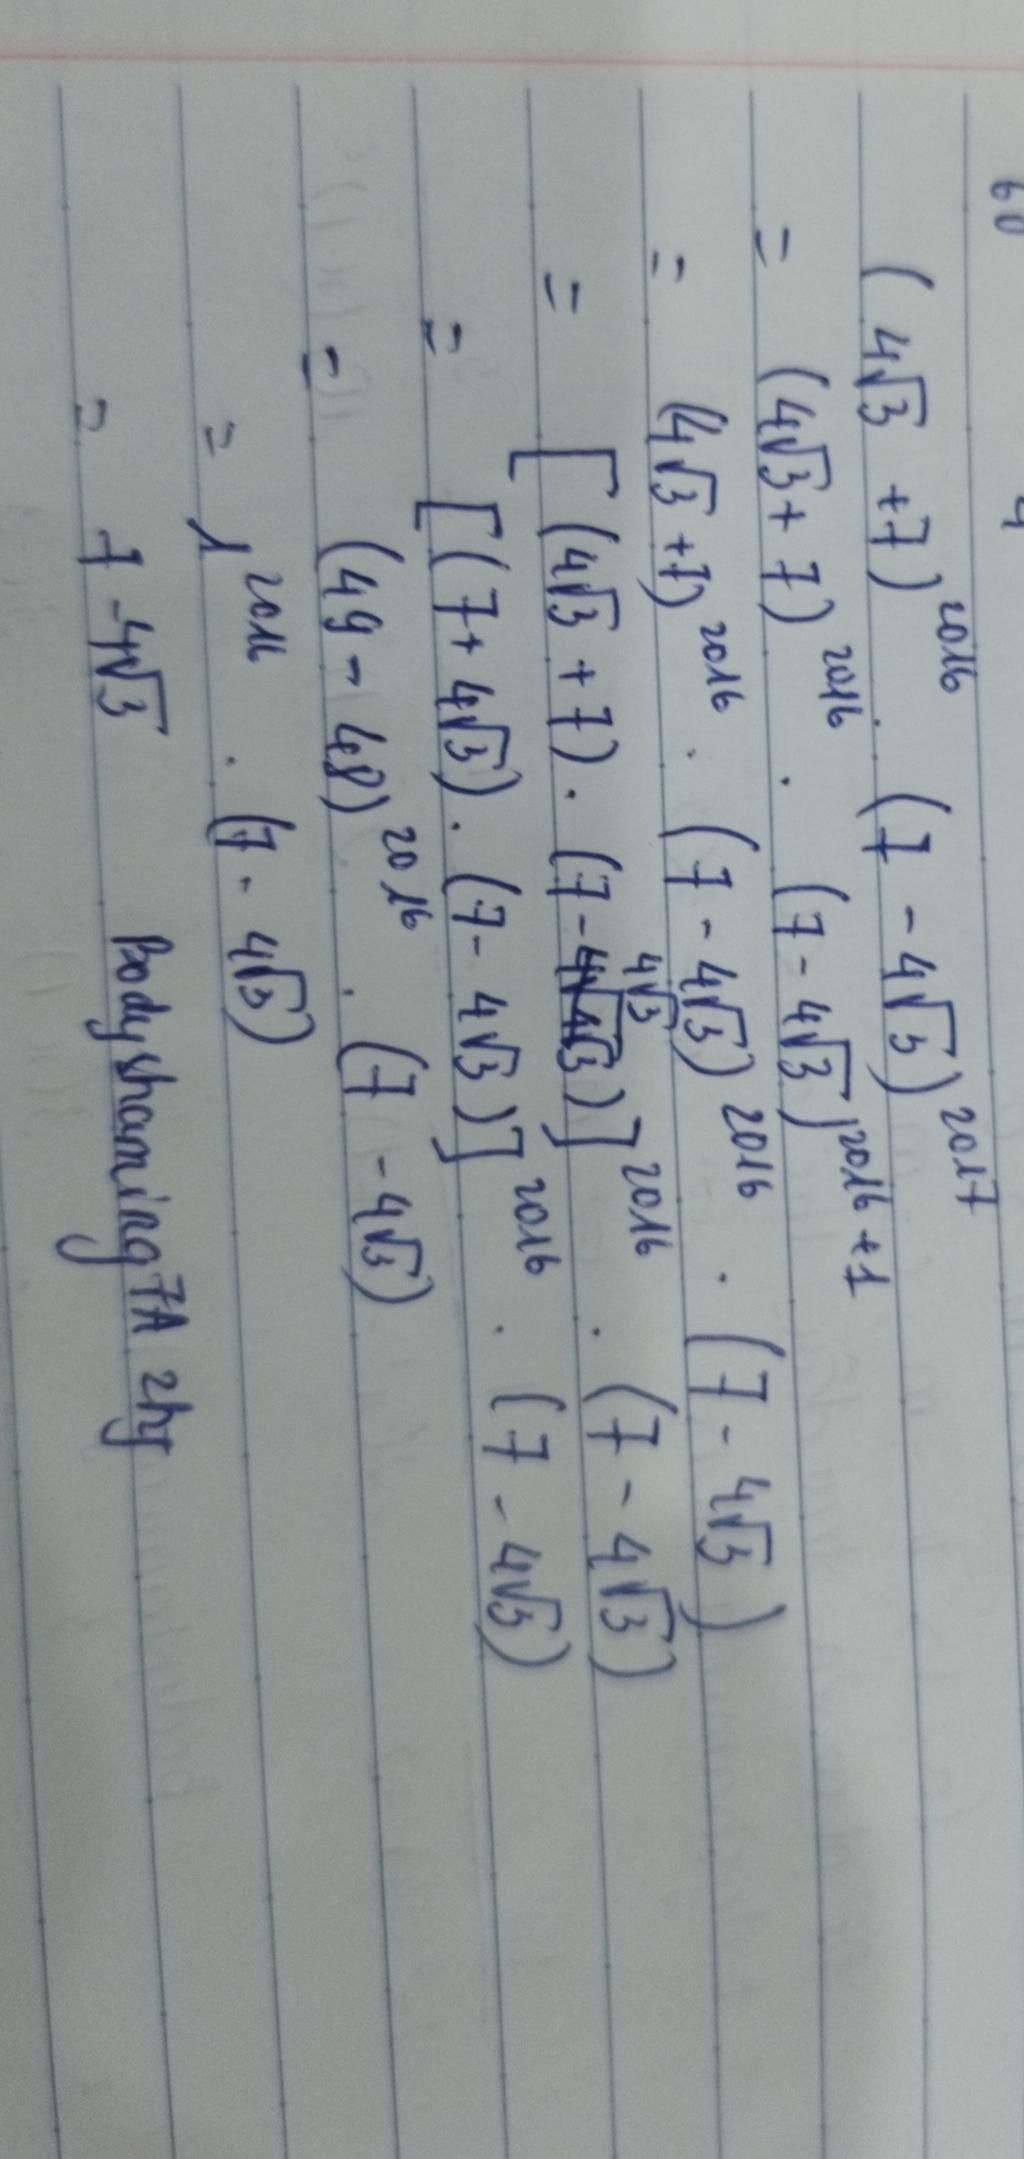 60 4
( 4√3 +7)²⁰¹⁶ . (7 - 4√3)²⁰¹⁷
= (4√3 + 7)²⁰¹⁶ . (7 - 4√3)²⁰¹⁶⁺¹
= (4√3 +7)²⁰¹⁶ . (7 - 4√3)²⁰¹⁶ . (7 - 4√3)
= [(4√3 + 7) . (7 - 4√3)]²⁰¹⁶ . (7 - 4√3)
= [(7 + 4√3) . (7 - 4√3)]²⁰¹⁶ . (7 - 4√3)
= (49 - 48)²⁰¹⁶ . (7 - 4√3)
= 1²⁰¹⁶ . (7 - 4√3)
= 7 - 4√3 Bodyshaming 7A